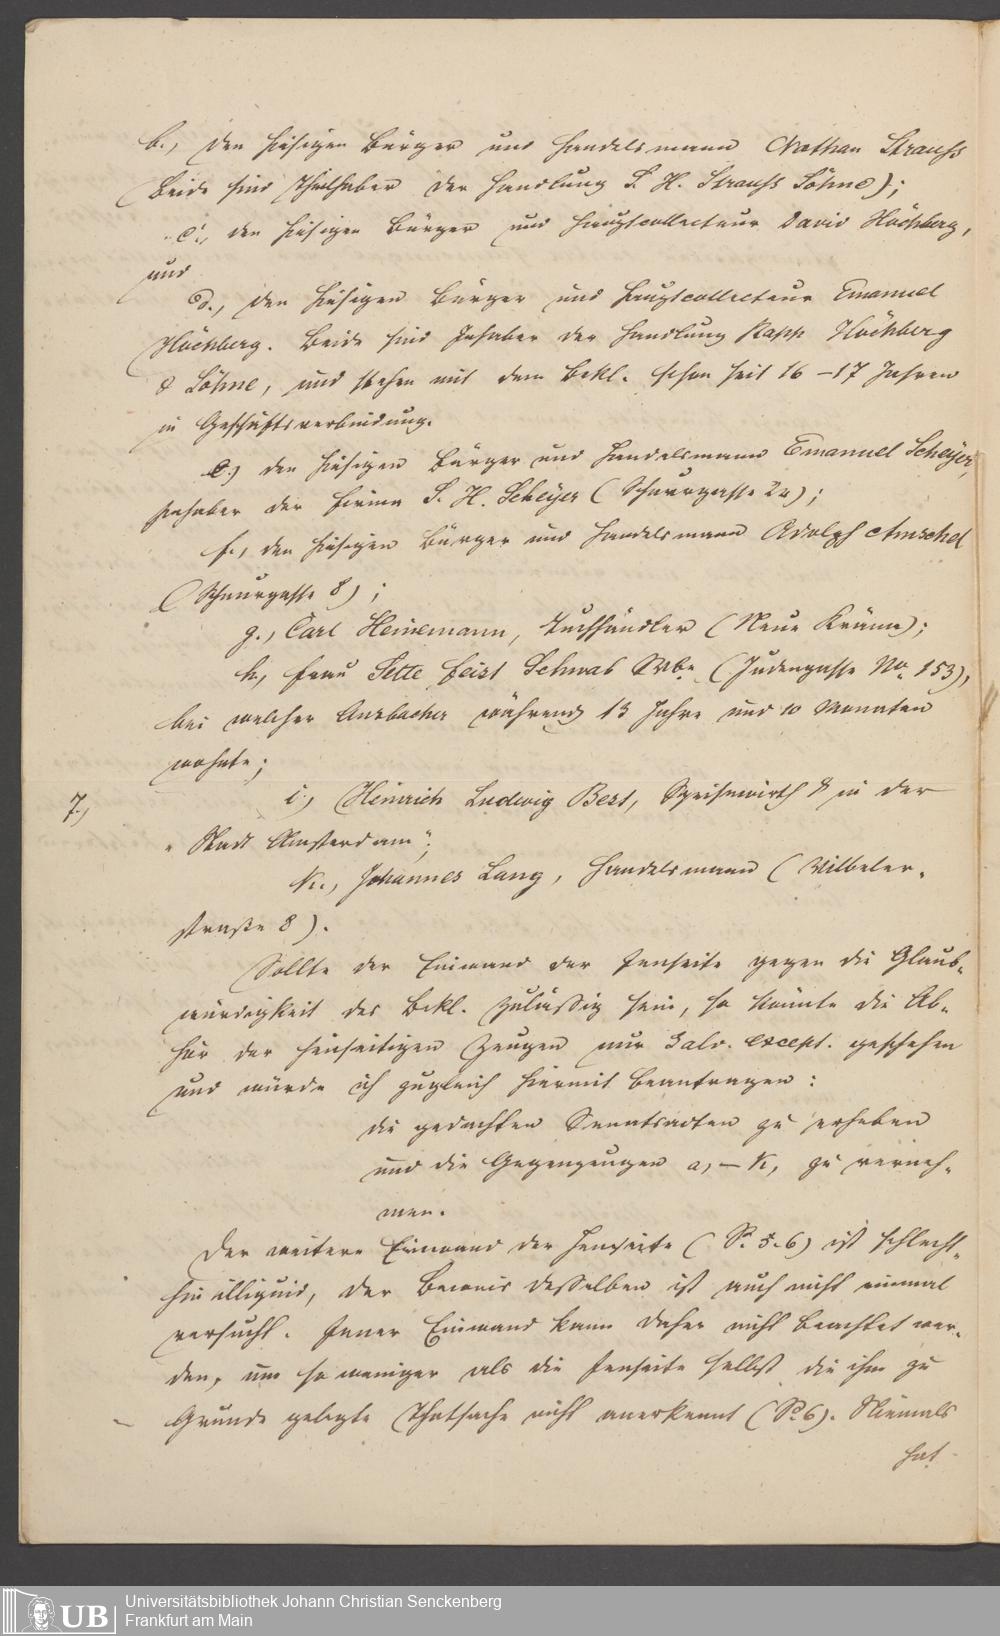 b., den hiesigen Bürger und Handelsmann Nathan Strauß
(beide sind Theilhaber der Handlung S. H. Strauß Söhne);
c., den hiesigen Bürger und Hauptcollecteur David Höchberg,
und
d., den hiesigen Bürger und Hauptcollecteur Emanuel
Höchberg. Beide sind Inhaber der Handlung Rapp Höchberg
& Söhne, und stehen mit dem Bekl. schon seit 16–17 Jahren
in Geschäftsverbindung.
e.) den hiesigen Bürger und Handelsmann Emanuel Scheyer,
Inhaber der Firma S. H. Scheyer (Schnurgasse 24);
f., den hiesigen Bürger und Handelsmann Adolph Amschel
(Schnurgasse 8);
g., Carl Heinemann, Tuchhändler (Neue Kräme);
h., Frau Jette Feist Schwab Wbe (Judengasse No. 153),
bei welcher Aurbacher während 13 Jahre und 10 Monaten
wohnte;
7.,
i., Heinrich Ludwig Best, Speisewirth in der
„Stadt Amsterdam“;
k., Johannes Lang, Handelsmann (Vilbeler-
straße 8).
Sollte der Einwand der Jenseite gegen die Glaub-
würdigkeit des Bekl. zulässig sein, so könnte die Ab-
hör der jenseitigen Zeugen nur salv. except. geschehen
und würde ich zugleich hiermit beantragen:
die gedachten Senatsacten zu erheben
und die Gegenzeugen a, – k, zu verneh-
men.
Der weitere Einwand der Jenseite (S. 5-6) ist schlecht-
hin illiquid, der Beweis desselben ist auch nicht einmal
versucht. Jener Einwand kann daher nicht beachtet wer-
den, um so weniger als die Jenseite selbst die ihm zu
Grunde gelegte Thatsache nicht anerkennt (S. 6). Niemals
hat
Universitätsbibliothek Johann Christian Senckenberg
Frankfurt am Main
UB